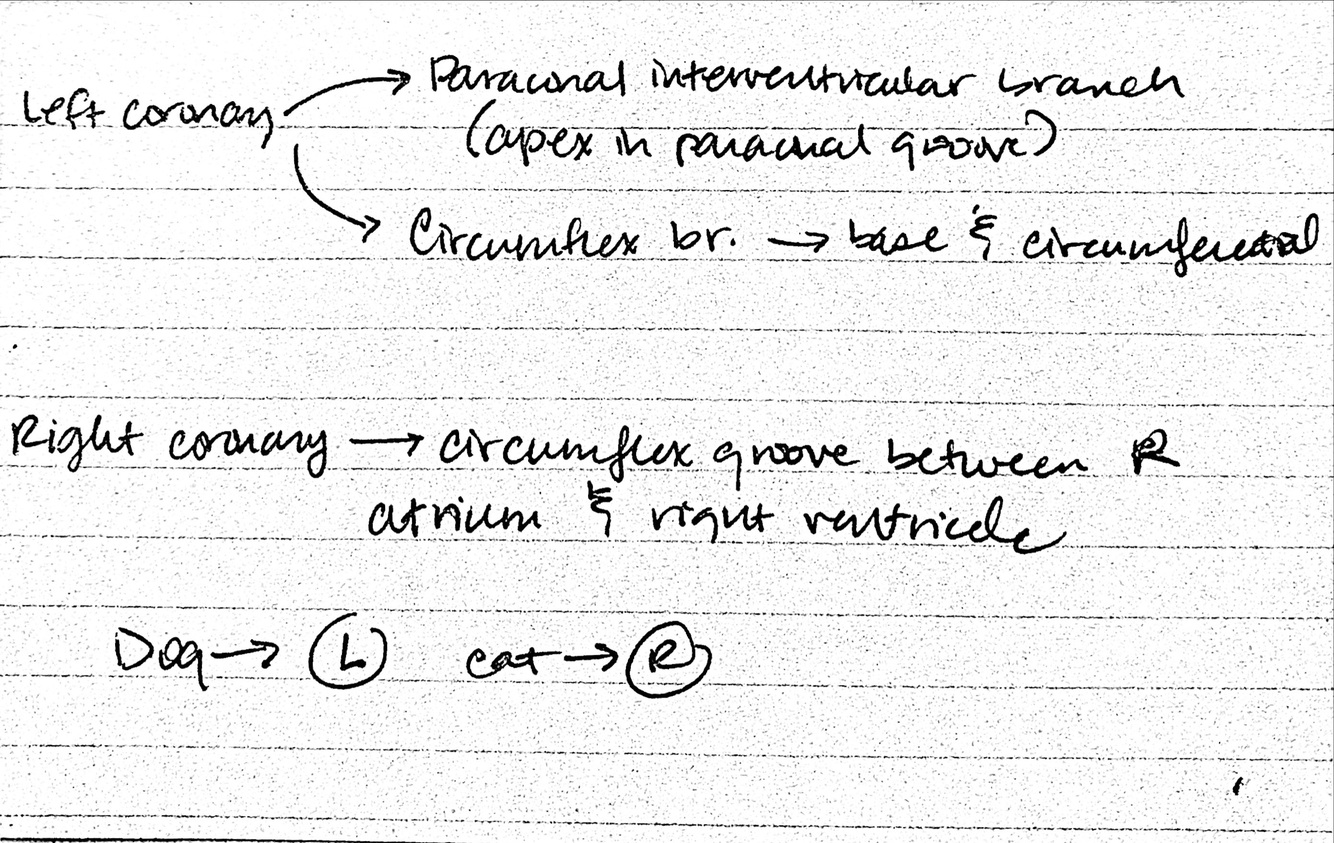 Left coronary → Paraconal interventricular branch
(apex in paraconal groove)
→ Circumflex br. → base & circumferential
Right coronary → circumflex groove between R
atrium & right ventricle
Dog → L cat → R